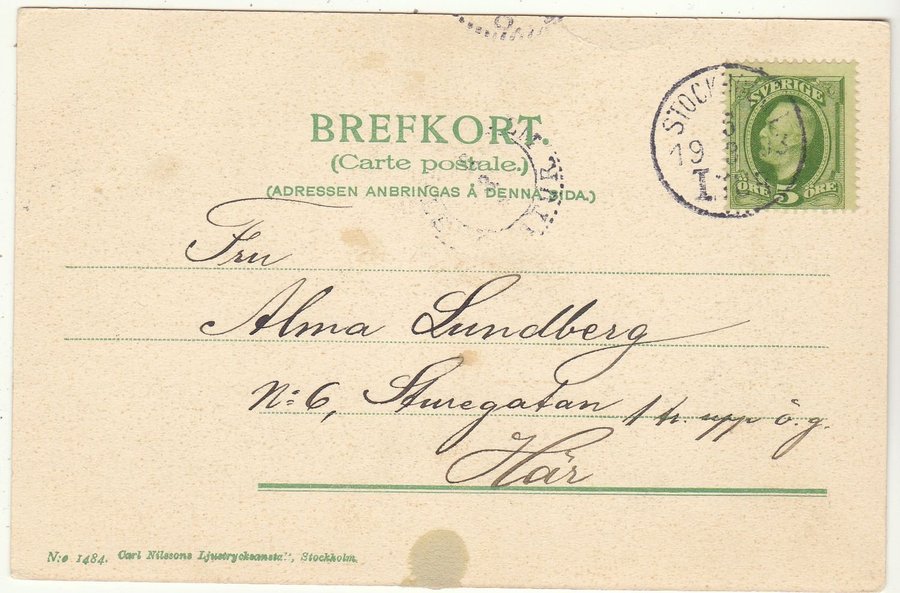 BREFKORT.
(Carte postale.)
(ADRESSEN ANBRINGAS Å DENNA SIDA.)
SVERIGE
ÖRE 5 ÖRE
STOCK
19
Fru
Alma Lundberg
N:6, Sturegatan 1 tr. upp ö. g.
Här
N:o 1484. Carl Nilssons Ljustrycksanstalt, Stockholm.